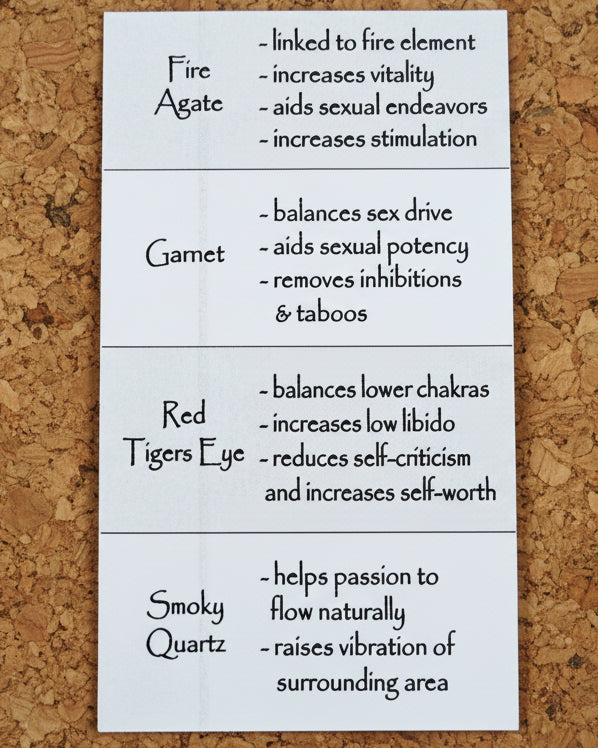 Fire
Agate
- linked to fire element
- increases vitality
- aids sexual endeavors
- increases stimulation
Garnet
- balances sex drive
- aids sexual potency
- removes inhibitions
& taboos
Red
Tigers Eye
- balances lower chakras
- increases low libido
- reduces self-criticism
and increases self-worth
Smoky
Quartz
- helps passion to
flow naturally
- raises vibration of
surrounding area